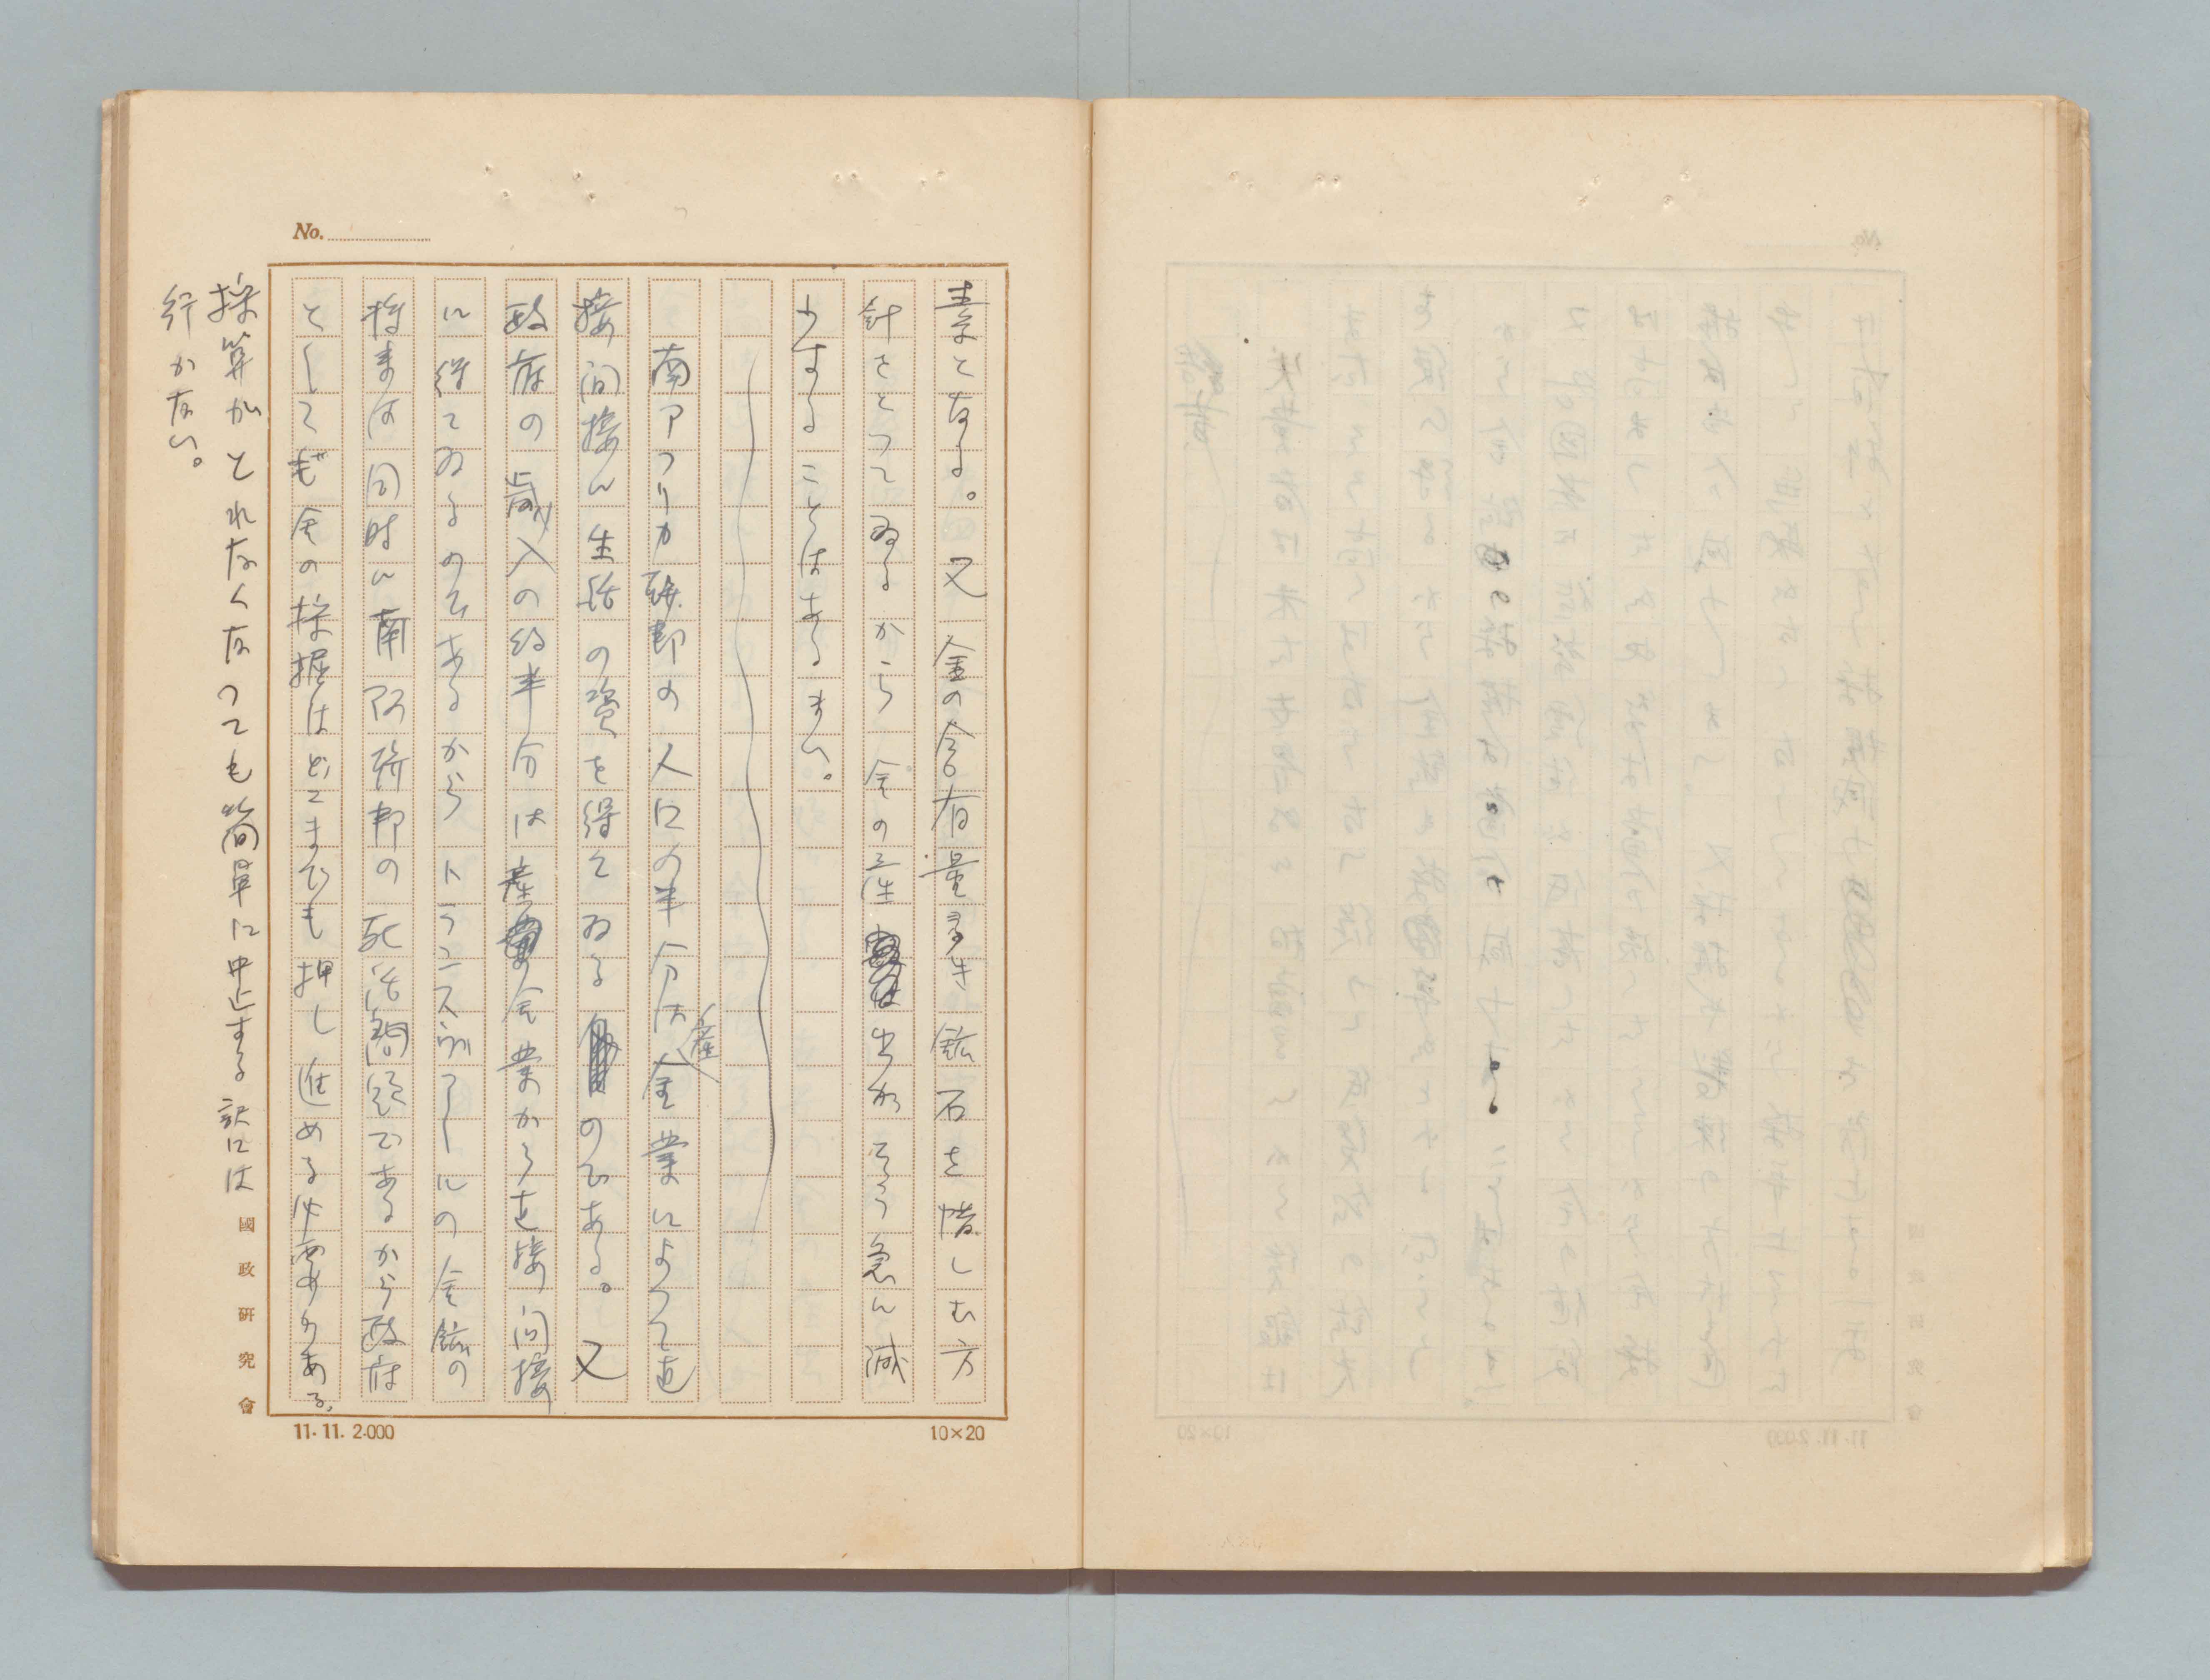 No.
素となる。又金の含有量多き鉱石を惜しむ方
針をとつてゐるから金の産出がそう急に減
少することはあるまい。
南アフリカ聯邦の人口の半分は産金業によつて直
接間接に生活の資を得てゐるのである。又
政府の歳入の約半分は産金業から直接間接
に得てゐるのであるからトランスヴアールの金鉱の
将来は同時に南阿聯邦の死活問題であるから政府
としても金の採掘はどこまでも押し進める必要がある。
採算がとれなくなつても簡単に中止する訳には
行かない。
國政研究會
10×20
11.11.2.000